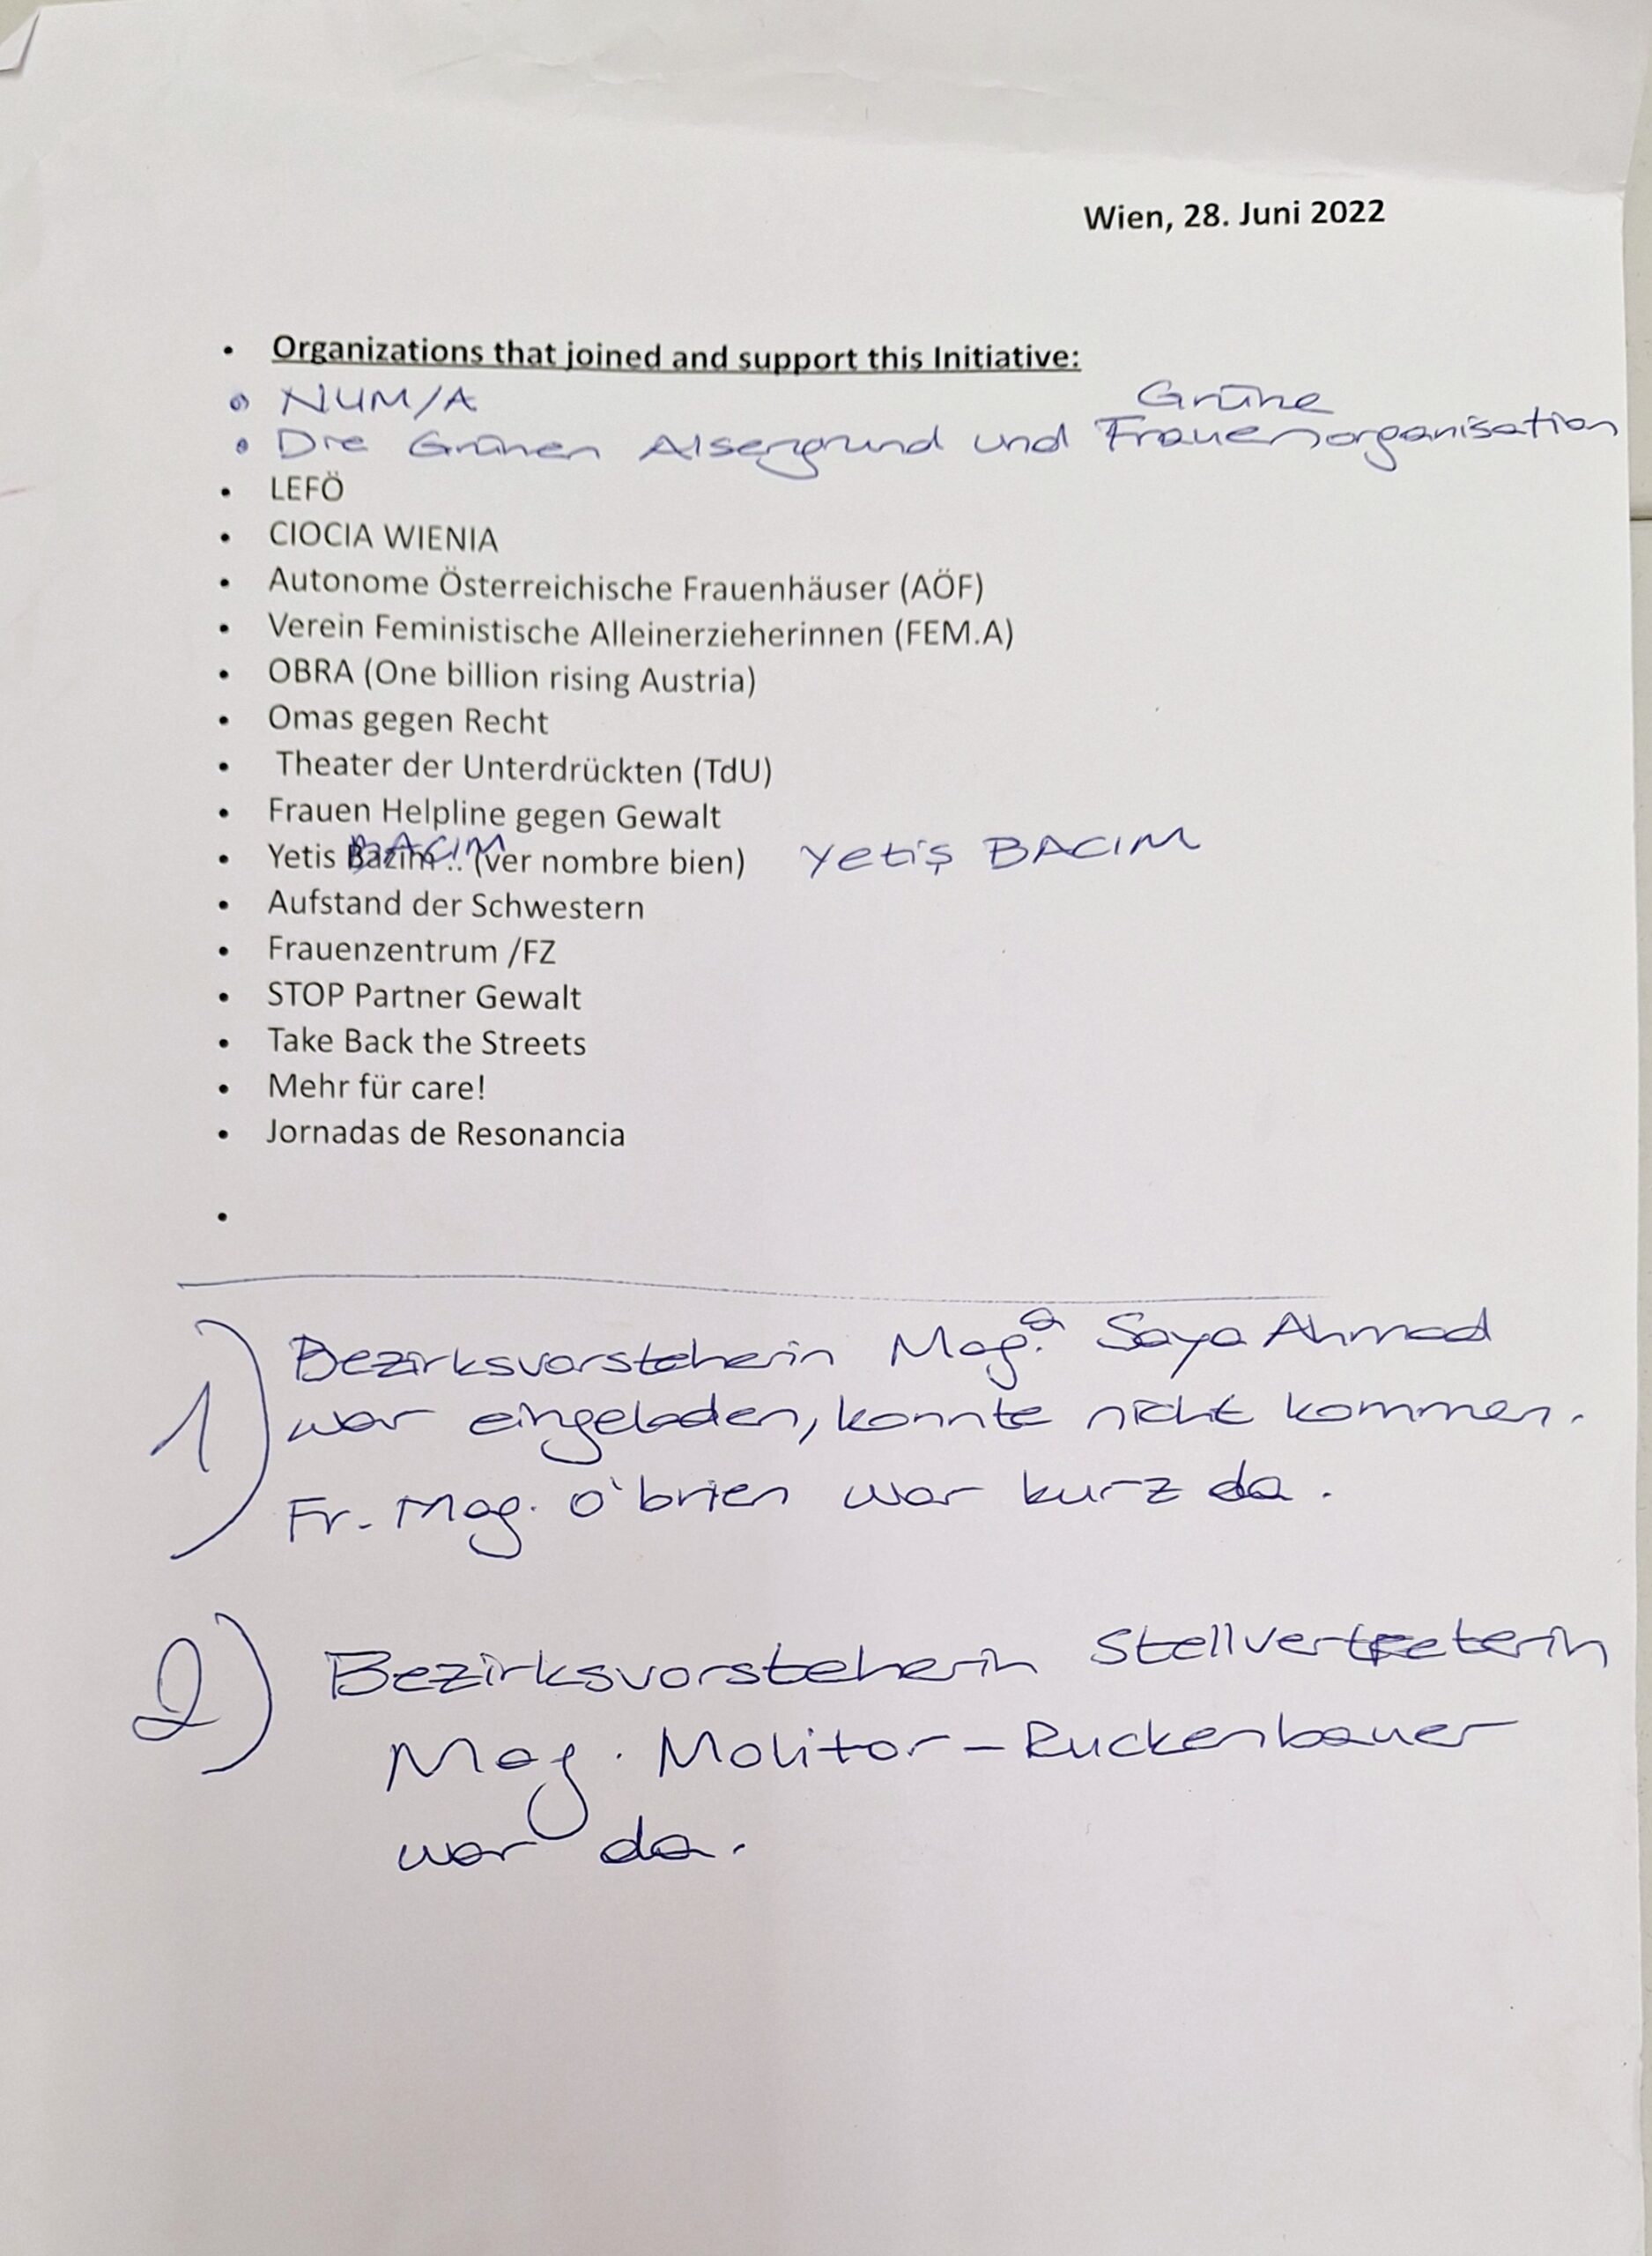 Wien, 28. Juni 2022
• Organizations that joined and support this Initiative:
• NUM/A
Grüne
• Die Grünen Alsergrund und Frauenorganisation
• LEFÖ
• CIOCIA WIENIA
• Autonome Österreichische Frauenhäuser (AÖF)
• Verein Feministische Alleinerzieherinnen (FEM.A)
• OBRA (One billion rising Austria)
• Omas gegen Recht
• Theater der Unterdrückten (TdU)
• Frauen Helpline gegen Gewalt
BACIM
• Yetis Bazim .. (ver nombre bien) Yetiş BACIM
• Aufstand der Schwestern
• Frauenzentrum /FZ
• STOP Partner Gewalt
• Take Back the Streets
• Mehr für care!
• Jornadas de Resonancia
•
1) Bezirksvorsteherin Mag.ª Saya Ahmad
war eingeladen, konnte nicht kommen.
Fr. Mag. O'brien war kurz da.
2) Bezirksvorsteherin Stellvertreterin
Mag. Molitor-Ruckenbauer
war da.